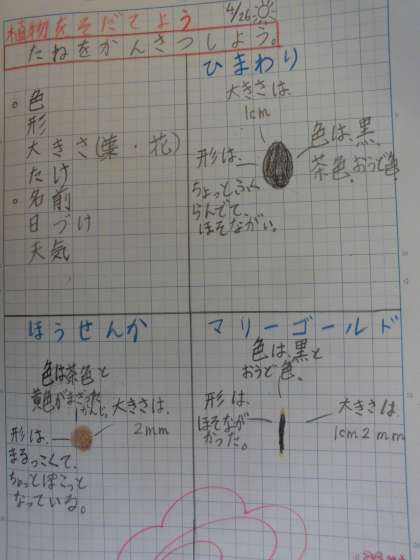 植物をそだてよう
4/26
たねをかんさつしよう。
。色
形
大きさ(葉・花)
たけ
。名前
日づけ
天気
ひまわり
大きさは、
1cm
色は、黒、
茶色、おうど色、
形は、
ちょっとふく
らんでて、
ほそながい。
ほうせんか
色は茶色と
黄色がまざった
かんじ。
大きさは、
2mm
形は、
まるっこくて、
ちょっとぽこっと
なっている。
マリーゴールド
色は、黒と
おうど色。
形は、
ほそなが
かった。
大きさは、
1cm2mm